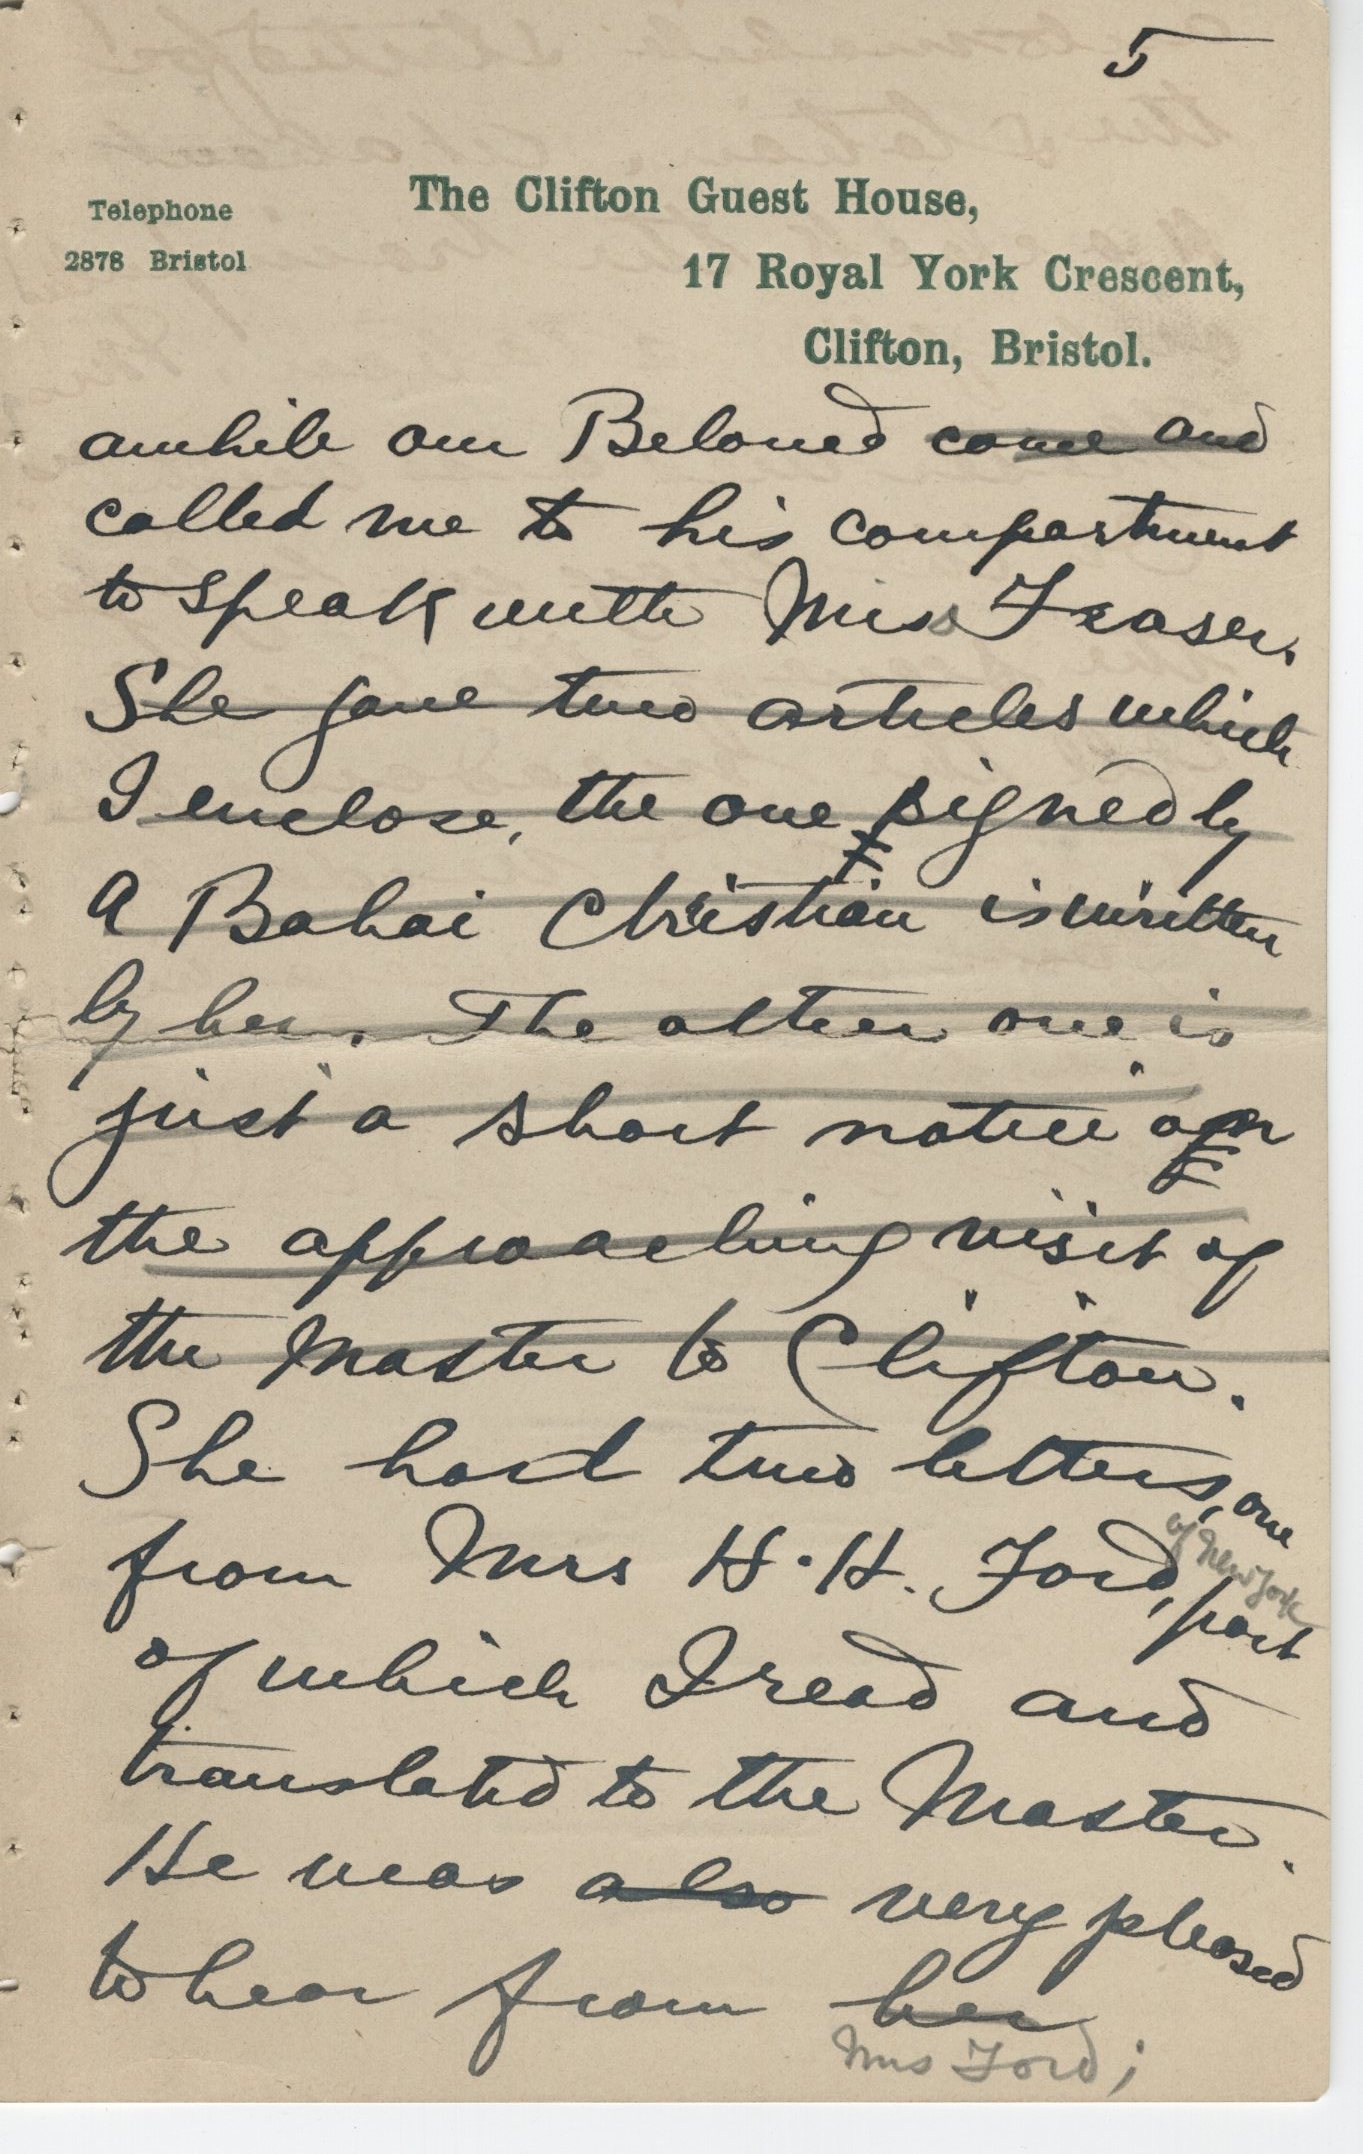 5
Telephone
2878 Bristol
The Clifton Guest House,
17 Royal York Crescent,
Clifton, Bristol.
awhile our Beloved came and
called me to his compartment
to speak with Miss Fraser.
She gave two articles which
I enclose, the one signed by
A Bahai Christian is written
by her. The other one is
just a short notice on
the approaching visit of
the Master to Clifton.
She had two letters, one
of New York
from Mrs H. H. Ford, part
of which I read and
translated to the Master.
He was also very pleased
to hear from her
Mrs Ford;